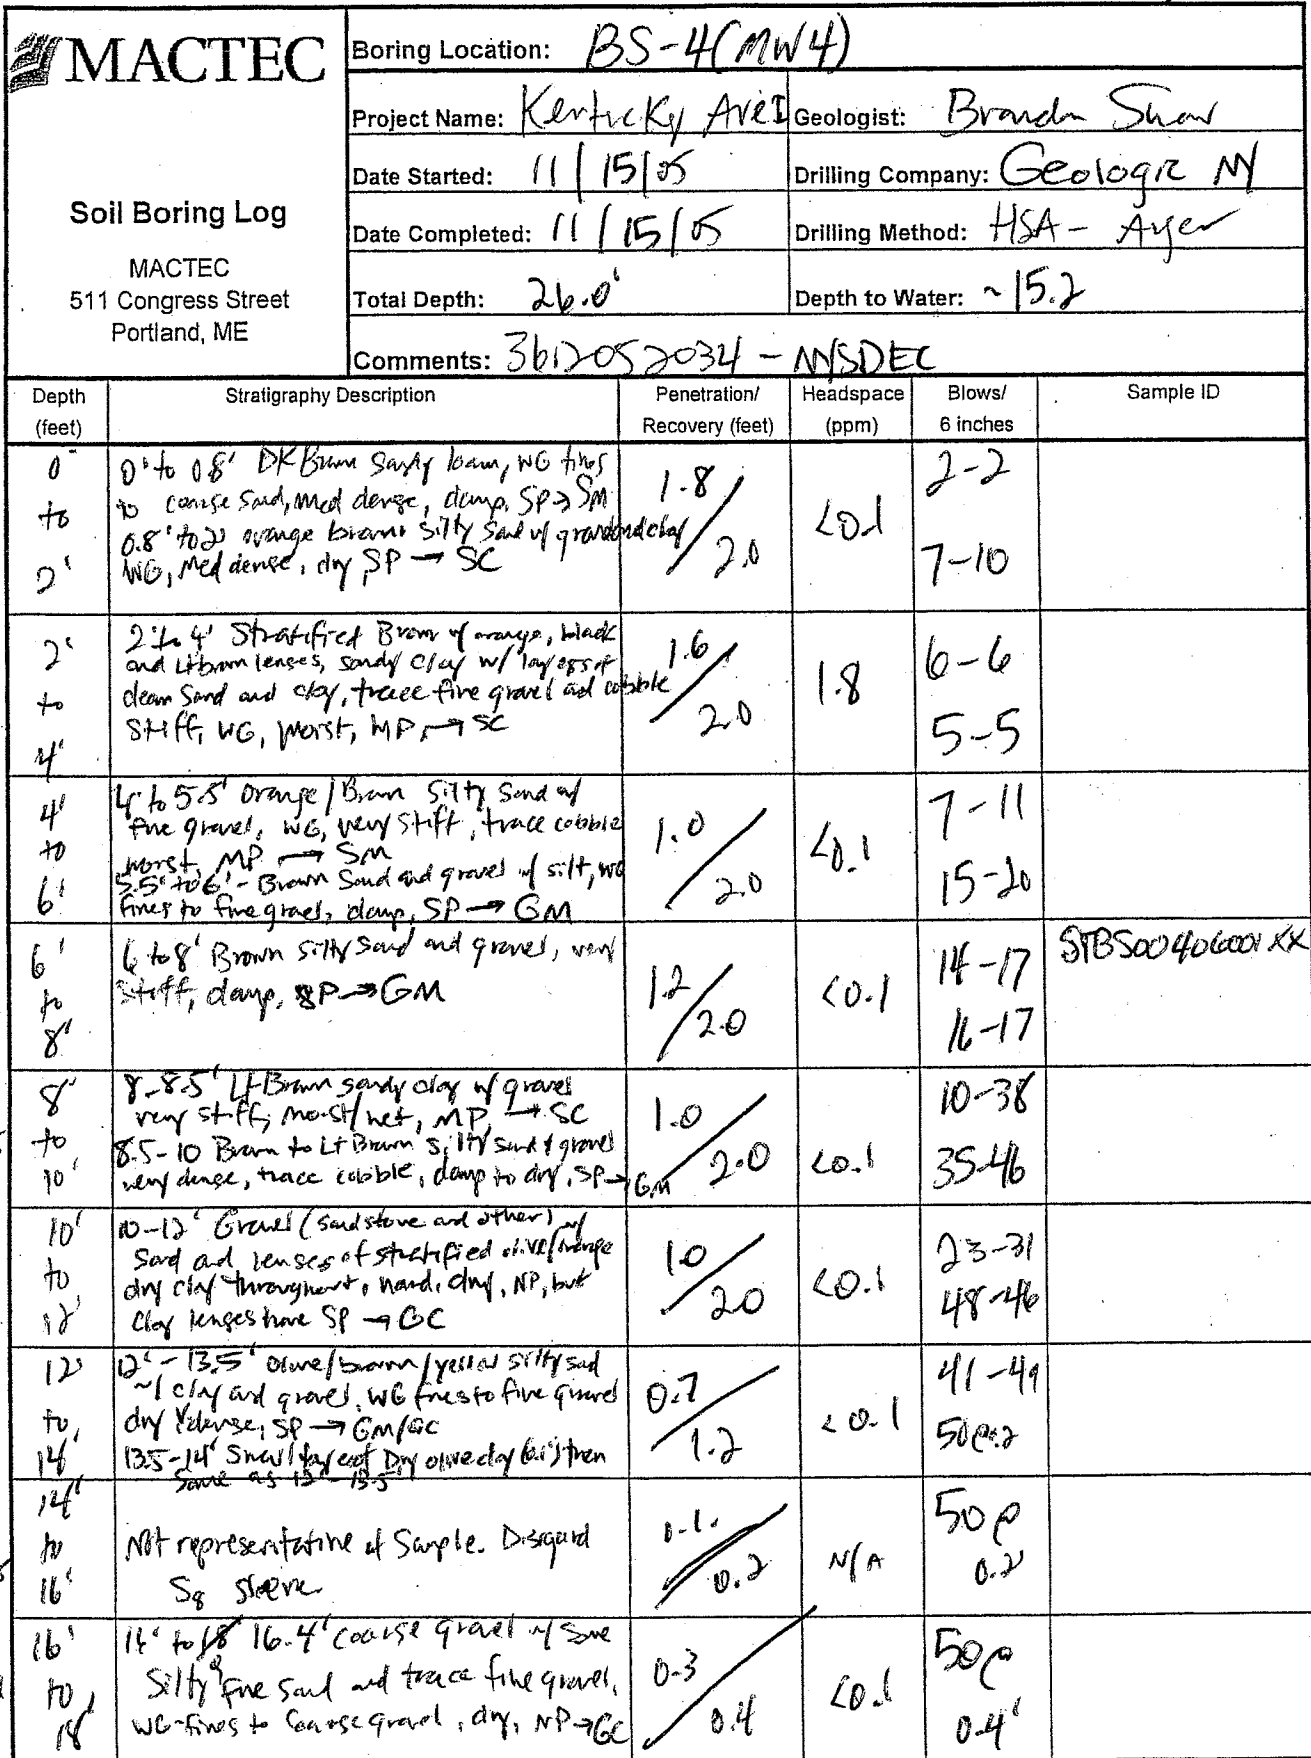 MACTEC
Soil Boring Log
MACTEC
511 Congress Street
Portland, ME
Boring Location: BS-4(MW4)
Project Name: Kentucky Ave I
Geologist: Brandon Shaw
Date Started: 11/15/05
Drilling Company: Geologic NY
Date Completed: 11/15/05
Drilling Method: HSA - Auger
Total Depth: 26.0'
Depth to Water: ~15.2
Comments: 3612052034 - NYSDEC
Depth (feet) Stratigraphy Description Penetration/ Recovery (feet) Headspace (ppm) Blows/ 6 inches Sample ID
0 to 2'
0' to 0.8' DK Brown Sandy loam, WG fines
to coarse Sand, Med dense, damp, SP→SM
0.8' to 2' orange brown silty Sand w/ gravel and clay
WG, Med dense, dry SP → SC
1.8/2.0
<0.1
2-2
7-10
2' to 4'
2' to 4' Stratified Brown w/ orange, black
and Lt brown lenses, sandy clay w/ layers of
clean Sand and clay, trace fine gravel and cobble
Stiff, WG, moist, MP, → SC
1.6/2.0
1.8
6-6
5-5
4' to 6'
4' to 5.5' Orange/Brown Silty Sand w/
fine gravel, WG, very stiff, trace cobble
moist, MP → SM
5.5' to 6' - Brown Sand and gravel w/ silt, WG
fines to fine gravel, damp, SP → GM
1.0/2.0
<0.1
7-11
15-20
6' to 8'
6 to 8' Brown silty sand and gravel, very
stiff, damp, SP→GM
1.2/2.0
<0.1
14-17
16-17
8' to 10'
8-8.5' Lt Brown sandy clay w/ gravel
very stiff, moist/wet, MP, → SC
8.5-10 Brown to Lt Brown silty sand & gravel
very dense, trace cobble, damp to dry, SP→GM
1.0/2.0
<0.1
10-38
35-46
10' to 12'
10-12' Gravel (sandstone and other) w/
Sand and lenses of stratified olive/orange
dry clay throughout, hard, dry, NP, but
Clay lenses have SP → GC
1.0/2.0
<0.1
23-31
48-46
12' to 14'
12' - 13.5' olive/brown/yellow silty sand
w/ clay and gravel, WG fines to fine gravel
dry V dense, SP → GM/GC
13.5-14' Small layer of Dry olive clay then
Same as 12' - 13.5'
0.7/1.2
<0.1
41-49
50@.2
14' to 16'
Not representative of Sample. Disgard
S8 sleeve
0.1/0.2
N/A
50@
0.2'
16' to 18'
16' to 16.4' Coarse gravel w/ some
Silty fine sand and trace fine gravel,
WG-fines to Coarse gravel, dry, NP→GC
0.3/0.4
<0.1
50@
0.4'